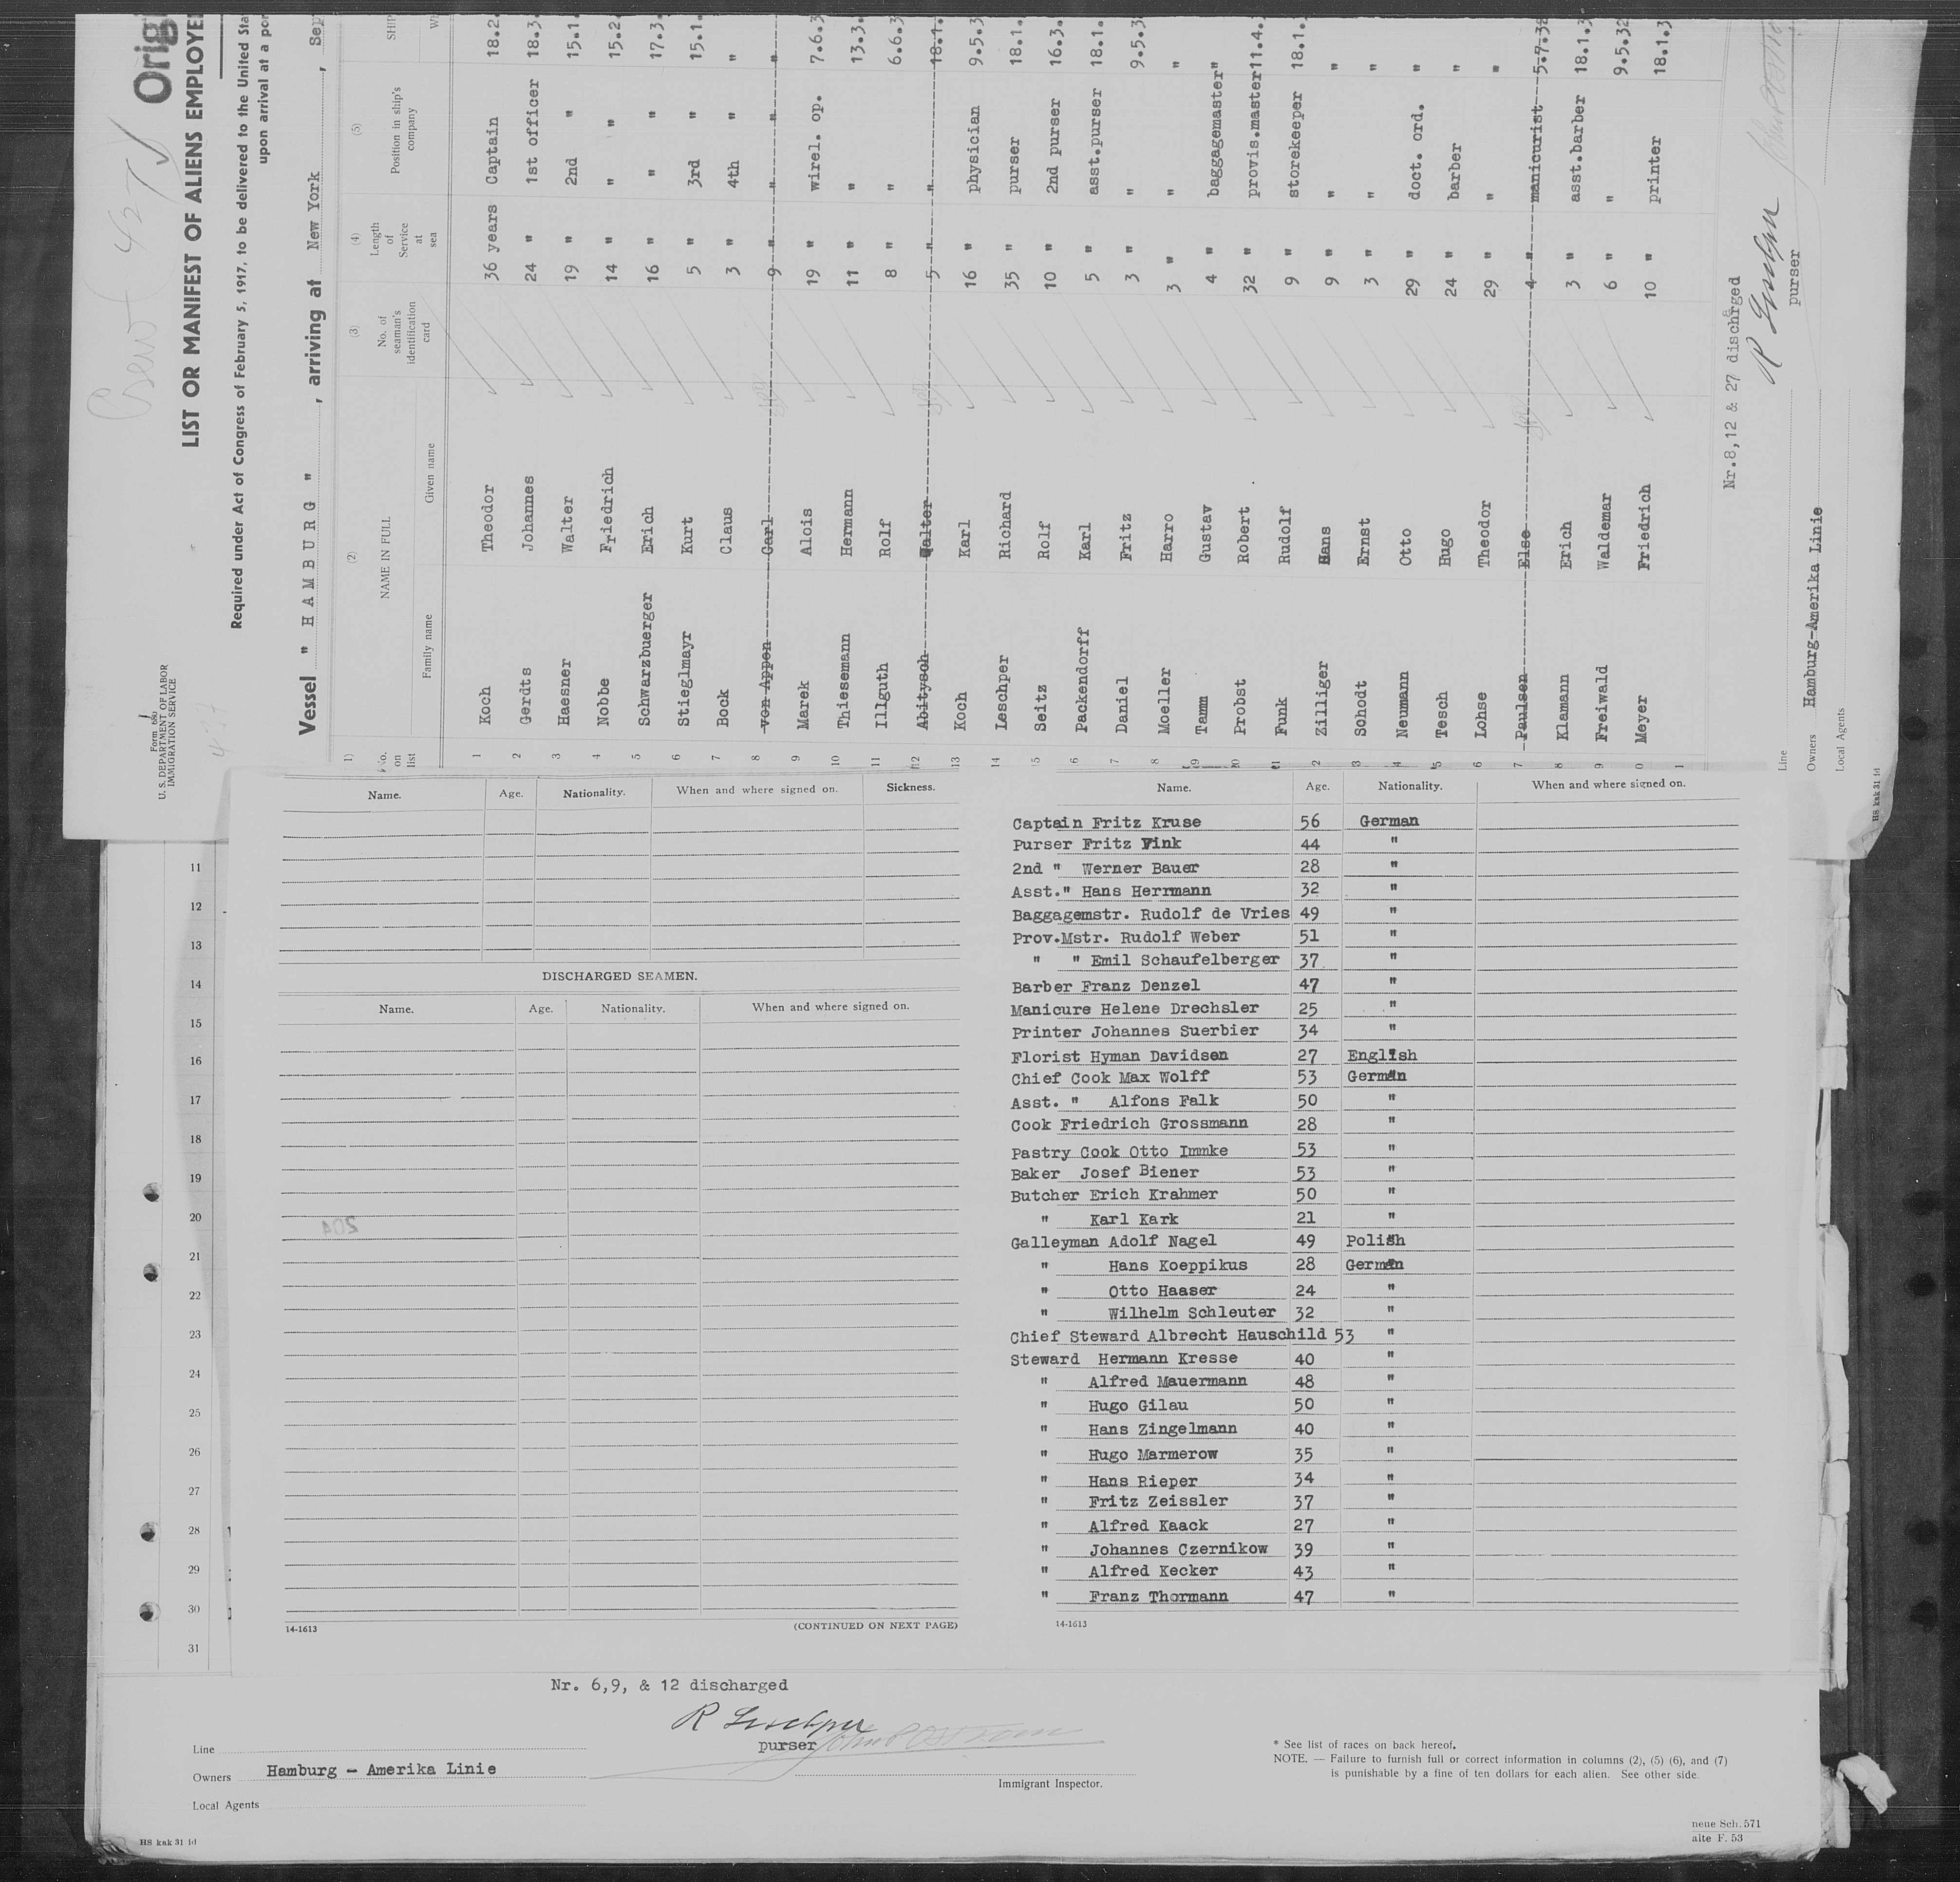 Orig
Crew
LIST OR MANIFEST OF ALIENS EMPLOYE
Required under Act of Congress of February 5, 1917, to be delivered to the United Sta
upon arrival at a por
Form 680
U. S. DEPARTMENT OF LABOR
IMMIGRATION SERVICE
Vessel " HAMBURG ", arriving at New York, Sep
(1) (2) (3) (4) (5)
No. on list NAME IN FULL No. of seaman's identification card Length of Service at sea Position in ship's company SHIP
Family name Given name W
1 Koch Theodor 36 years Captain 18.2.
2 Gerdts Johannes 24 " 1st officer 18.3.
3 Haesner Walter 19 " 2nd " 15.1.
4 Nobbe Friedrich 14 " " " 15.2.
5 Schwarzbuerger Erich 16 " " " 17.3.
6 Stieglmayr Kurt 5 " 3rd " 15.1.
7 Bock Claus 3 " 4th " "
8 von Appen Carl 9 " " " "
9 Marek Alois 19 " wirel. op. 7.6.3
10 Thiesemann Hermann 11 " " 13.3.
11 Illguth Rolf 8 " " 6.6.3
12 Abitysch Walter 5 " " 18.1.
13 Koch Karl 16 " physician 9.5.3
14 Leschper Richard 35 " purser 18.1.
5 Seitz Rolf 10 " 2nd purser 16.3.
6 Packendorff Karl 5 " asst.purser 18.1.
7 Daniel Fritz 3 " " 9.5.3
8 Moeller Harro 3 " " "
9 Tamm Gustav 4 " baggagemaster "
0 Probst Robert 32 " provis.master 11.4.
1 Funk Rudolf 9 " storekeeper 18.1.
2 Zilliger Hans 9 " " "
3 Schodt Ernst 3 " " "
4 Neumann Otto 29 " doct. ord. "
5 Tesch Hugo 24 " barber "
6 Lohse Theodor 29 " " "
7 Paulsen Else 4 " manicurist 5.7.32
8 Klamann Erich 3 " asst.barber 18.1.3
9 Freiwald Waldemar 6 " " 9.5.32
0 Meyer Friedrich 10 " printer 18.1.3
1
Nr.8,12 & 27 discharged
R Leschper
purser
Line
Owners Hamburg-Amerika Linie
Local Agents
HS kak 31 1d
11
12
13
14
15
16
17
18
19
20
21
22
23
24
25
26
27
28
29
30
31
Name. Age. Nationality. When and where signed on. Sickness.
DISCHARGED SEAMEN.
Name. Age. Nationality. When and where signed on.
204
14-1613 (CONTINUED ON NEXT PAGE)
Name. Age. Nationality. When and where signed on.
Captain Fritz Kruse 56 German
Purser Fritz Fink 44 "
2nd " Werner Bauer 28 "
Asst." Hans Herrmann 32 "
Baggagemstr. Rudolf de Vries 49 "
Prov.Mstr. Rudolf Weber 51 "
" " Emil Schaufelberger 37 "
Barber Franz Denzel 47 "
Manicure Helene Drechsler 25 "
Printer Johannes Suerbier 34 "
Florist Hyman Davidsen 27 English
Chief Cook Max Wolff 53 German
Asst. " Alfons Falk 50 "
Cook Friedrich Grossmann 28 "
Pastry Cook Otto Immke 53 "
Baker Josef Biener 53 "
Butcher Erich Krahmer 50 "
" Karl Kark 21 "
Galleyman Adolf Nagel 49 Polish
" Hans Koeppikus 28 German
" Otto Haaser 24 "
" Wilhelm Schleuter 32 "
Chief Steward Albrecht Hauschild 53 "
Steward Hermann Kresse 40 "
" Alfred Mauermann 48 "
" Hugo Gilau 50 "
" Hans Zingelmann 40 "
" Hugo Marmerow 35 "
" Hans Rieper 34 "
" Fritz Zeissler 37 "
" Alfred Kaack 27 "
" Johannes Czernikow 39 "
" Alfred Kecker 43 "
" Franz Thormann 47 "
14-1613
Nr. 6,9, & 12 discharged
R Leschper
purser
Line
Owners Hamburg - Amerika Linie
Local Agents
Immigrant Inspector.
* See list of races on back hereof.
NOTE. — Failure to furnish full or correct information in columns (2), (5) (6), and (7)
is punishable by a fine of ten dollars for each alien. See other side.
HS kak 31 1d
neue Sch. 571
alte F. 53